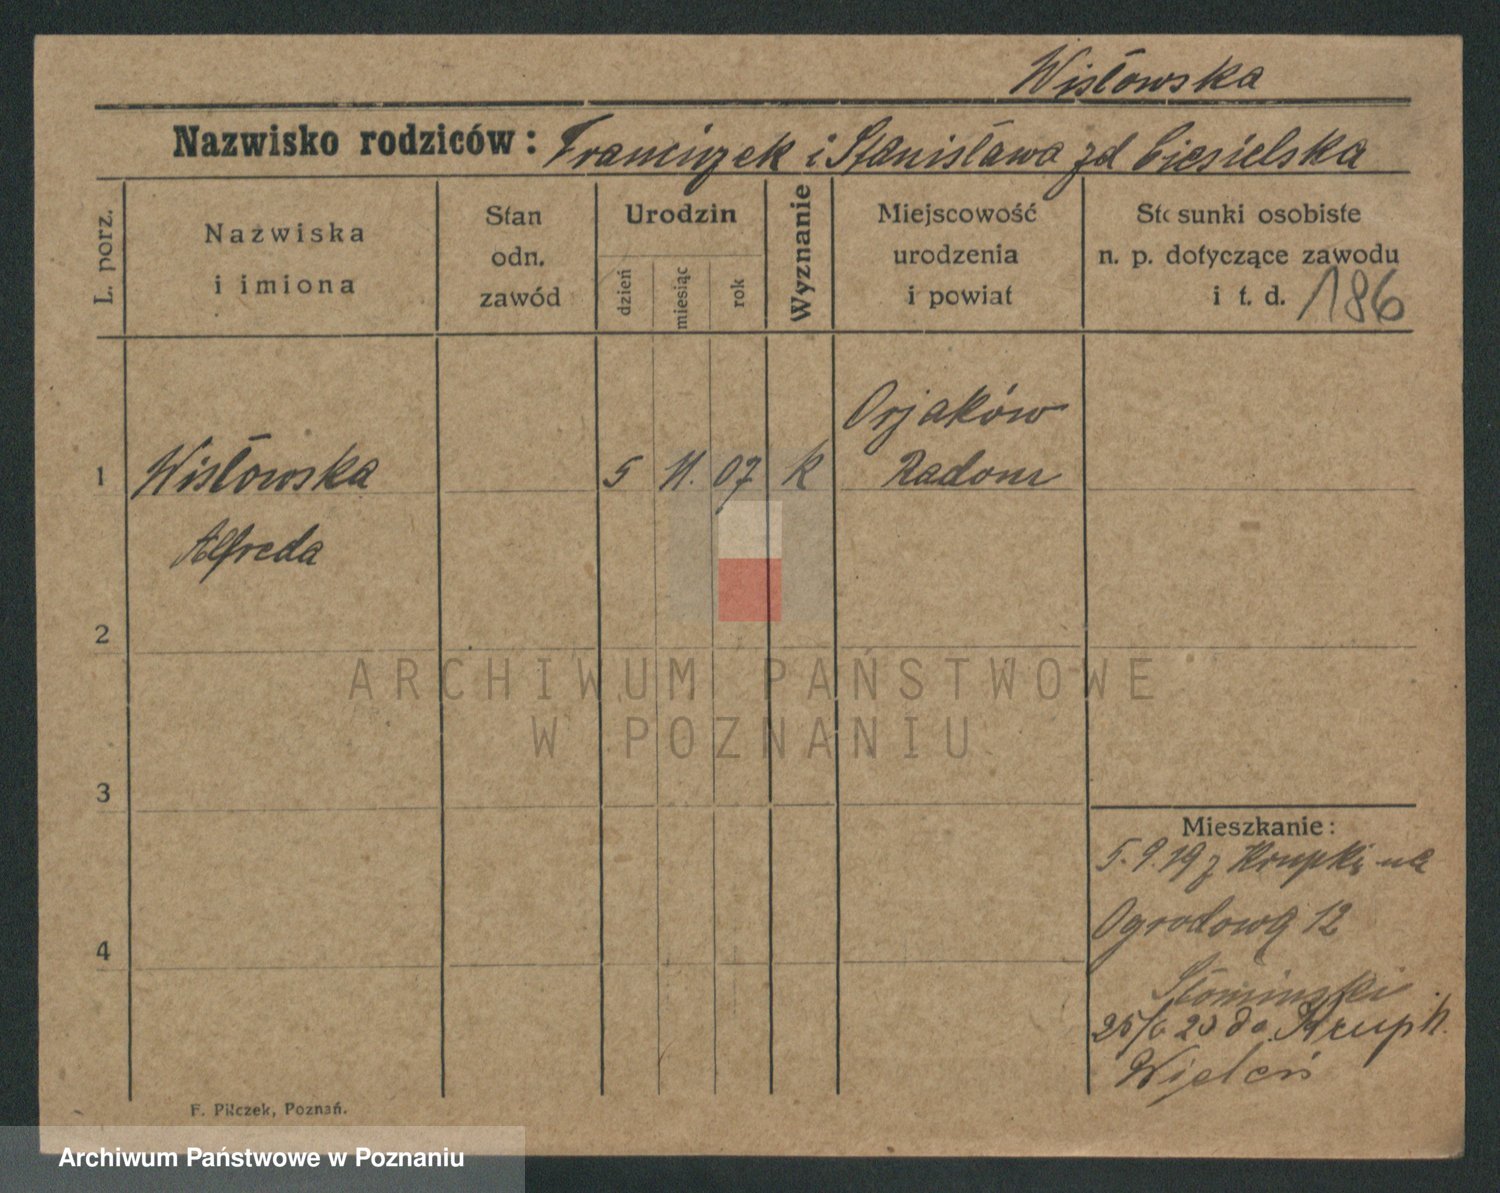 Wisłowska
Nazwisko rodziców: Franciszek i Stanisława zd Ciesielska
L. porz.
Nazwiska
i imiona
Stan
odn.
zawód
Urodzin
dzień
miesiąc
rok
Wyznanie
Miejscowość
urodzenia
i powiat
Stosunki osobiste
n. p. dotyczące zawodu
i t. d. 186
Orjaków
1 Wisłowska 5 11. 07 k Radom
Alfreda
2
ARCHIWUM PAŃSTWOWE
W POZNANIU
3
Mieszkanie:
5.9.19 z Krupki na
Ogrodową 12
4
Słominski
25/6 20 do Krupk.
Wieleń
F. Pilczek, Poznań.
Archiwum Państwowe w Poznaniu